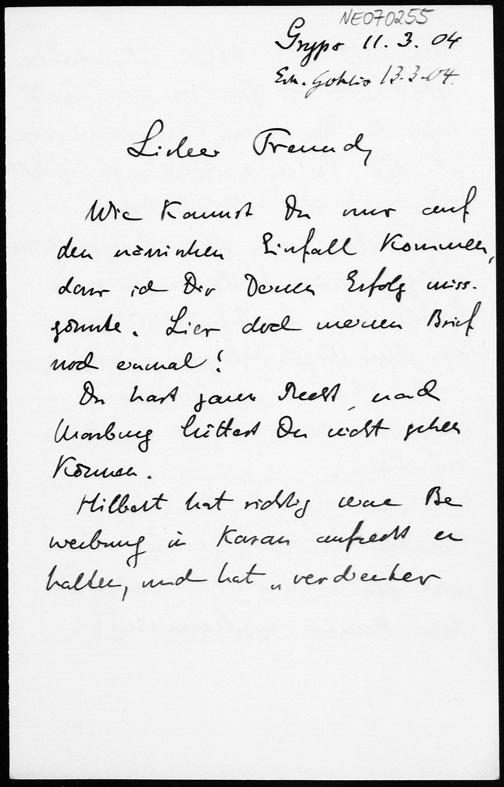 NE070255
Gryps 11. 3. 04
Erh. Gohlis 13.3.04.
Lieber Freund,
Wie kannst Du nur auf
den närrischen Einfall kommen,
dass ich Dir Deinen Erfolg miss-
gönnte. Lies doch meinen Brief
noch einmal!
Du hast ganz Recht, nach
Marburg hättest Du nicht gehen
können.
Hilbert hat richtig seine Be
werbung in Kasan aufrecht er
halten, und hat „